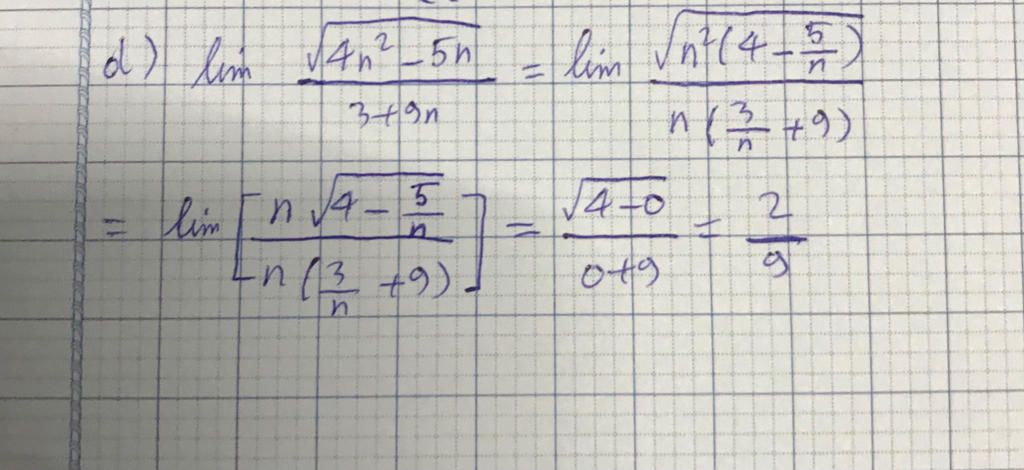 d) lim √(4n² - 5n) / (3 + 9n) = lim √(n²(4 - 5/n)) / (n(3/n + 9))
= lim [n √(4 - 5/n) / (n(3/n + 9))] = √(4-0) / (0+9) = 2/9